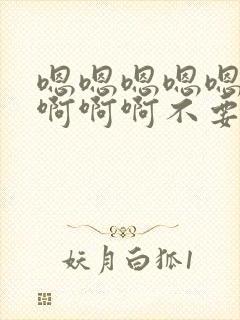 嗯嗯嗯嗯嗯
啊啊啊不要
妖月白狐1